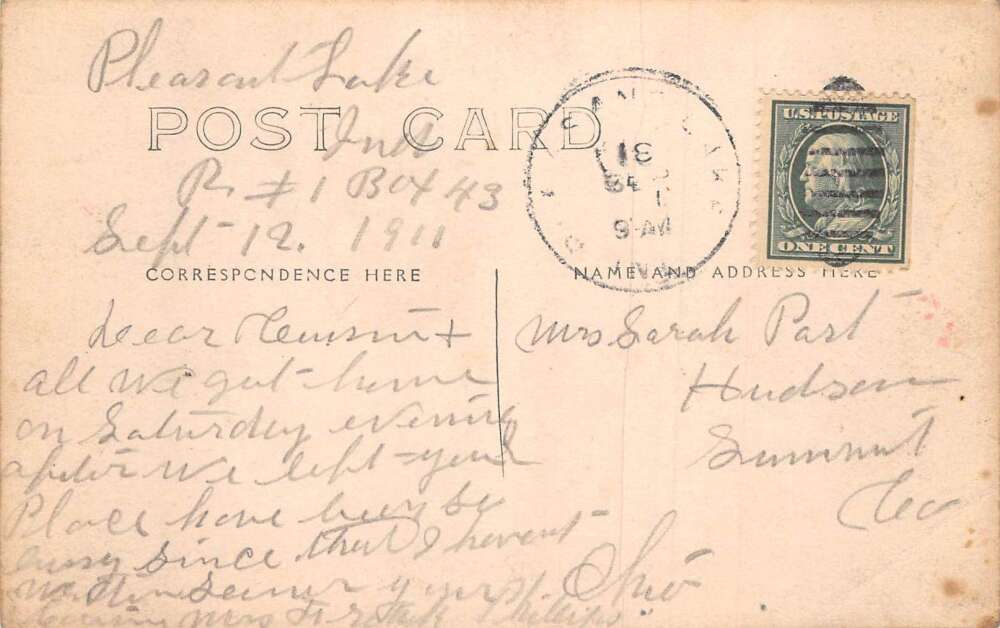 Pleasant Lake
POST CARD
Ind
R. #1 Box 43
Sept 12. 1911
CORRESPONDENCE HERE
NAME AND ADDRESS HERE
U.S. POSTAGE
ONE CENT
9 AM
IND.
Dear &
all we got home
on Saturday evening
after we left your
Place have been so
since that I havent
yours
Mrs
Mrs Sarah Past
Hudson
Summit
Co
Ohio